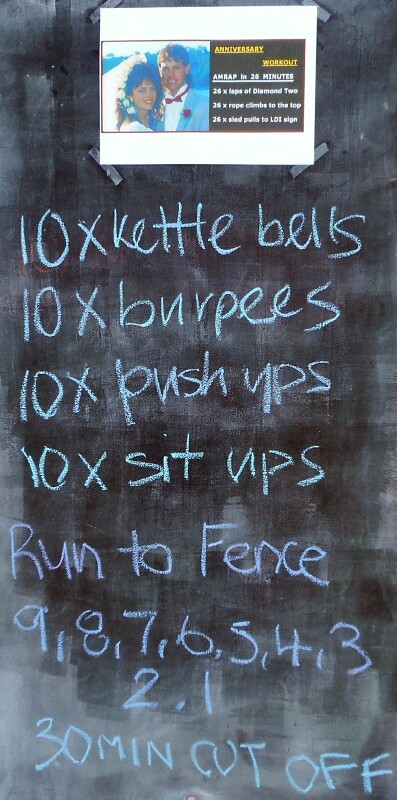 ANNIVERSARY
WORKOUT
AMRAP in 26 MINUTES
26 x laps of Diamond Two
26 x rope climbs to the top
26 x sled pulls to LDI sign
10 x kettle bells
10 x burpees
10 x push ups
10 x sit ups
Run to Fence
9,8,7,6,5,4,3
2.1
30MIN CUT OFF